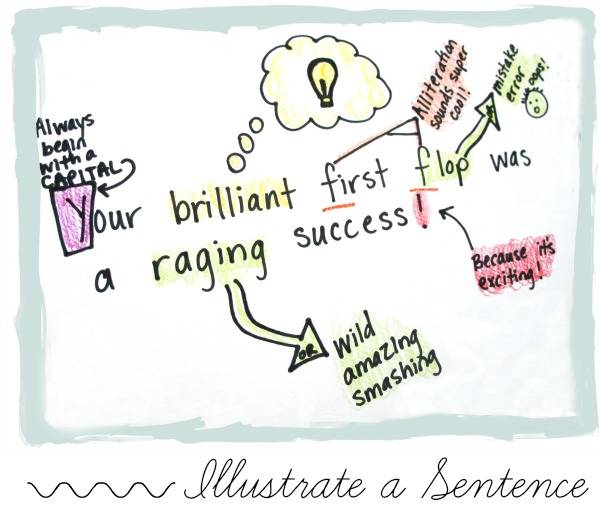 Always
begin
with a
CAPITAL
Your brilliant first flop was
a raging success!
Alliteration
sounds super
cool!
OR
mistake
error
oops!
Because it's
exciting!
OR
wild
amazing
smashing
Illustrate a Sentence